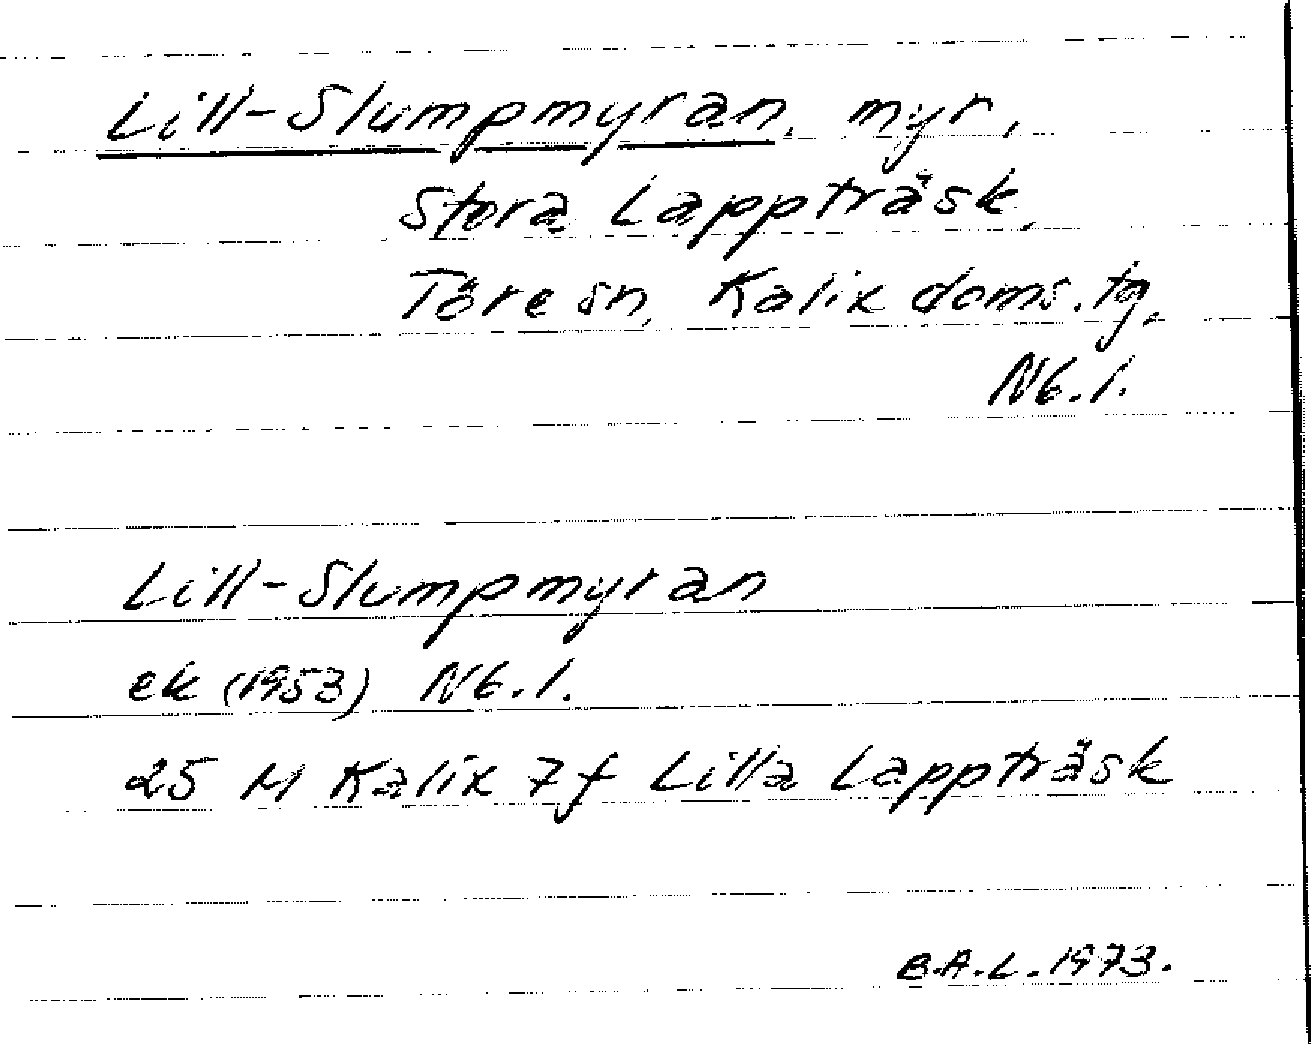 Lill-Slumpmyran, myr,
Stora Lappträsk,
Töre sn, Kalix doms.tg,
Nb.l.
Lill-Slumpmyran
ek (1953) Nb.l.
25 M Kalix 7f Lilla Lappträsk
B.A.L. 1973.